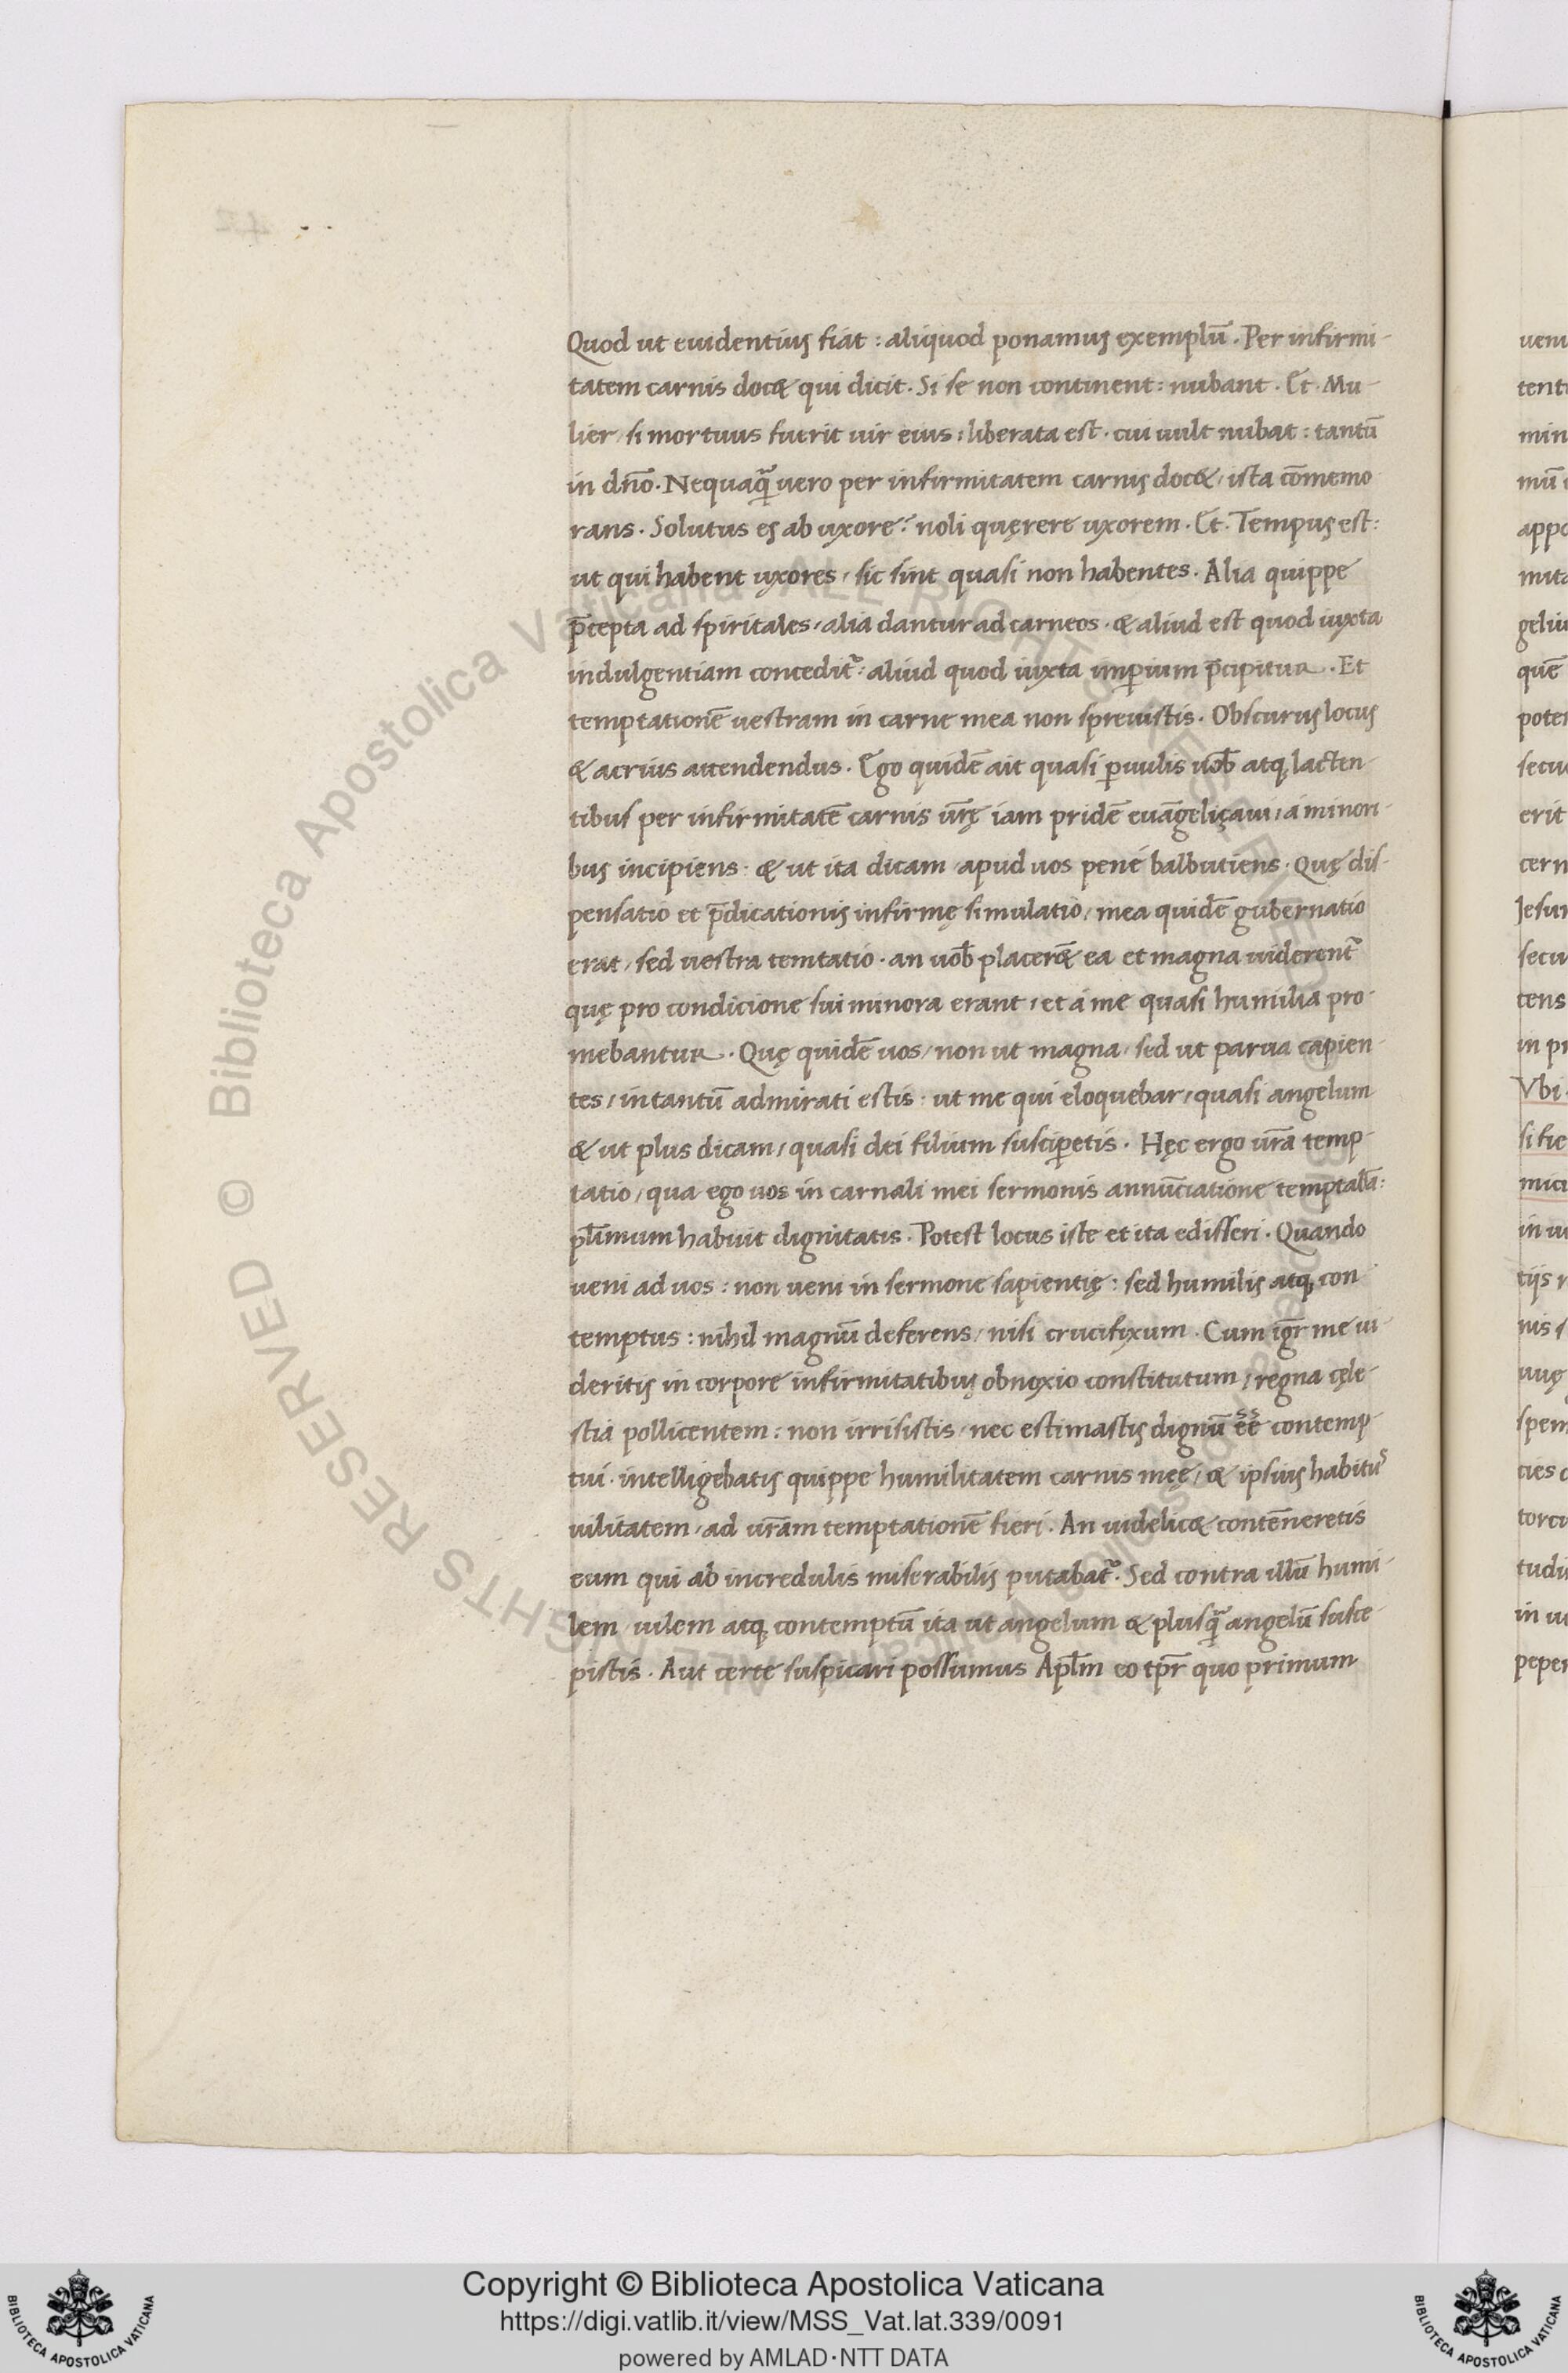 Quod ut euidentius fiat : aliquod ponamus exemplū . Per infirmi-
tatem carnis doc& qui dicit . Si se non continent : nubant . Et . Mu-
lier / si mortuus fuerit uir eius : liberata est . cui uult nubat : tantū
in dño . Nequaq̃ uero per infirmitatem carnis doc& / ista cōmemo
rans . Solutus es ab uxore ? noli quęrere uxorem . Et . Tempus est :
ut qui habent uxores / sic sint quasi non habentes . Alia quippe
p̄cepta ad spiritales / alia dantur ad carneos . & aliud est quod iuxta
indulgentiam concedit᷑ : aliud quod iuxta imꝑium p̄cipitur . Et
temptationē uestram in carne mea non spreuistis . Obscurus locus
& acrius attendendus . Ego quidē ait quasi ꝑuulis uob̄ atq; lacten-
tibus per infirmitatē carnis ūrę iam pridē euāgeliçaui / á minori-
bus incipiens . & ut ita dicam / apud uos pené balbutiens . Quę dis-
pensatio et p̄dicationis infirmę simulatio / mea quidē gubernatio
erat / sed uestra temtatio . an uob̄ placer& ea et magna uiderent᷑
quę pro condicione sui minora erant / et á me quasi humilia pro-
mebantur . Quę quidē uos / non ut magna / sed ut parua capien-
tes / intantū admirati estis : ut me qui eloquebar / quasi angelum
& ut plus dicam / quasi dei filium susciꝑetis . Hęc ergo ūra temp-
tatio / qua ego uos in carnali mei sermonis annūciatione temptabā :
pl̄imum habuit dignitatis . Potest locus iste et ita edisseri . Quando
ueni ad uos : non ueni in sermone sapientię : sed humilis atq; con
temptus : nihil magnū deferens / nisi crucifixum . Cum igr̄ me ui-
deritis in corpore infirmitatibus obnoxio constitutum / regna cęle-
stia pollicentem : non irrisistis / nec estimastis dignū ēē contemp-
tui . intelligebatis quippe humilitatem carnis meę / & ipsius habitus
uilitatem / ad ūram temptationē fieri . An uidelic& contēneretis
eum qui ab incredulis miserabilis putabat᷑ . Sed contra illū humi-
lem / uilem atq; contemptū ita ut angelum & plusq̃ angelū susce-
pistis . Aut certe suspicari possumus Apl̄m eo tp̄r quo primum
ueni
tent
min
mū
appo
mita
geliu
quē
poter
secu
erit
cern
Jesu
secu
tens
in pr
Vbi
si fie
mici
in u
tijs
nis
uuę
spem
cies
torcu
tudi
in u
peper
© Biblioteca Apostolica Vaticana ALL RIGHTS RESERVED
Copyright © Biblioteca Apostolica Vaticana
https://digi.vatlib.it/view/MSS_Vat.lat.339/0091
powered by AMLAD·NTT DATA
BIBLIOTECA APOSTOLICA VATICANA
BIBLIOTECA APOSTOLICA VATICANA